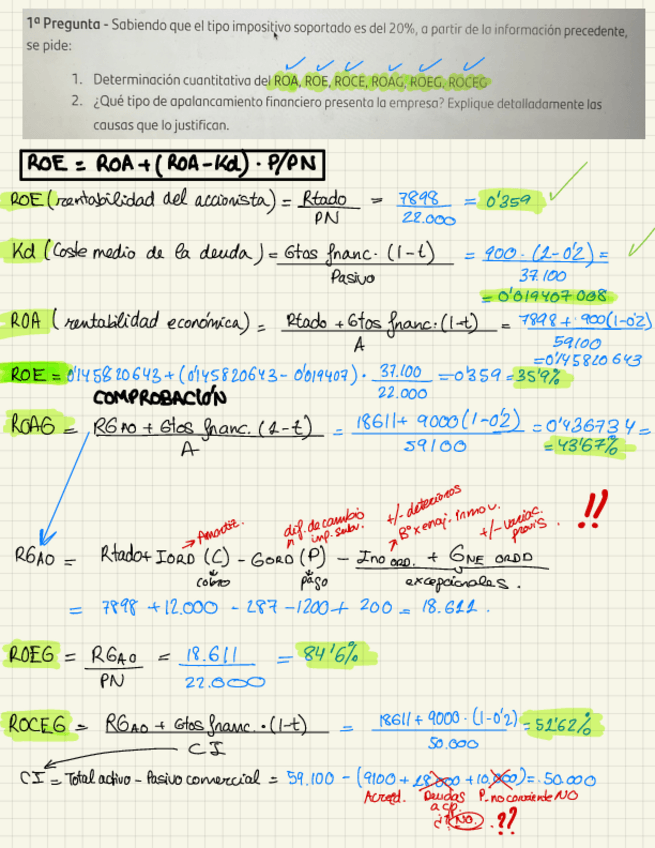 1ª Pregunta - Sabiendo que el tipo impositivo soportado es del 20%, a partir de la información precedente,
se pide:
1. Determinación cuantitativa del ROA, ROE, ROCE, ROAG, ROEG, ROCEG
2. ¿Qué tipo de apalancamiento financiero presenta la empresa? Explique detalladamente las
causas que lo justifican.
ROE = ROA + (ROA - Kd) · P/PN
ROE (rentabilidad del accionista) = Rtado / PN = 7898 / 22.000 = 0'359
Kd (Coste medio de la deuda) = Gtos financ. (1-t) / Pasivo = 900 · (1-0'2) / 37.100 =
= 0'019407008
ROA (rentabilidad económica) = Rtado + Gtos financ. (1-t) / A = 7898 + 900(1-0'2) / 59100
= 0'145820643
ROE = 0'145820643 + (0'145820643 - 0'019407) · 37.100 / 22.000 = 0'359 = 35'9%
COMPROBACIÓN
ROAG = RGAO + Gtos financ. (1-t) / A = 18611 + 9000(1-0'2) / 59100 = 0'436734 =
= 43'67%
→ Amortiz. dif. de cambio imp. subv. +/- deterioros Bº x enaj. inmov. +/- variac. provis. !!
RGAO = Rtado + IORD (C) - GORD (P) - Ino ORD. + GNE ORDD
cobro pago excepcionales.
= 7898 + 12.000 - 287 - 1200 + 200 = 18.611.
ROEG = RGAO / PN = 18.611 / 22.000 = 84'6%
ROCEG = RGAO + Gtos financ. · (1-t) / CI = 18611 + 9000 · (1-0'2) / 50.000 = 51'62%
CI = Total activo - Pasivo comercial = 59.100 - (9100 + 18000 + 10.000) = 50.000
Acreed. Deudas a cp. P. no corriente NO
¿? NO. ??